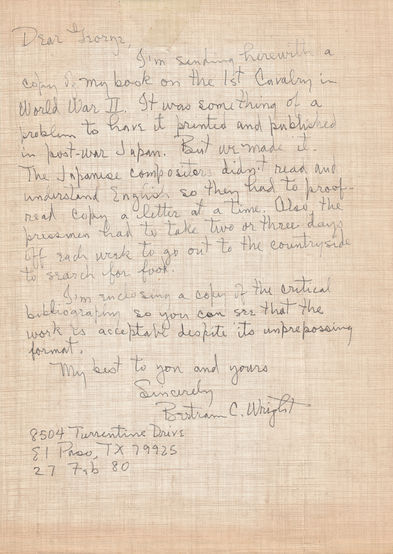 Dear George,
I'm sending herewith a
copy of my book on the 1st Cavalry in
World War II. It was something of a
problem to have it printed and published
in post-war Japan. But we made it.
The Japanese compositors didn't read and
understand English so they had to proof-
read copy a letter at a time. Also, the
pressmen had to take two or three days
off each week to go out to the countryside
to search for food.
I'm enclosing a copy of the critical
bibliography so you can see that the
work is acceptable despite its unprepossing
format.
My best to you and yours
Sincerely
Bertram C. Wright
8504 Turrentine Drive
El Paso, TX 79925
27 Feb 80